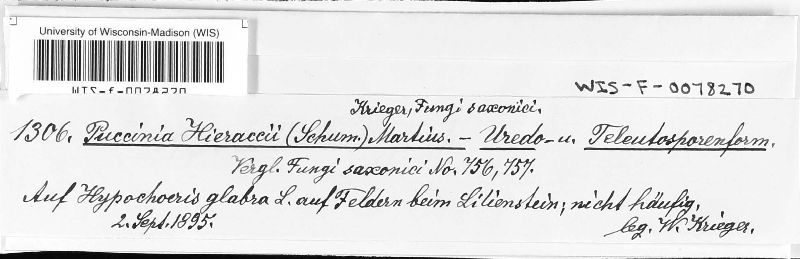 University of Wisconsin-Madison (WIS)
WIS-F-0078270
WIS-F-0078270
Krieger, Fungi saxonici.
1306. Puccinia Hieraccii (Schum.) Martius. – Uredo- u. Teleutosporenform.
Vergl. Fungi saxonici No. 756, 757.
Auf Hypochoeris glabra L. auf Feldern beim Lilienstein; nicht häufig.
2. Sept. 1895.
leg. W. Krieger.